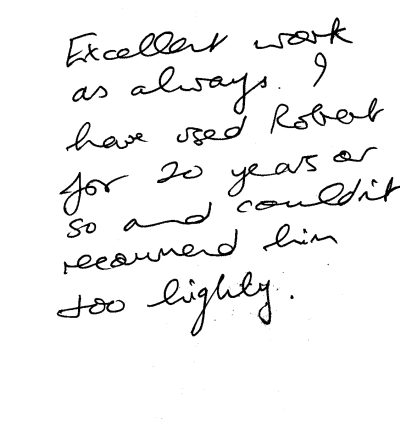 Excellent work
as always. I
have used Robert
for 20 years or
so and couldn't
recommend him
too highly.